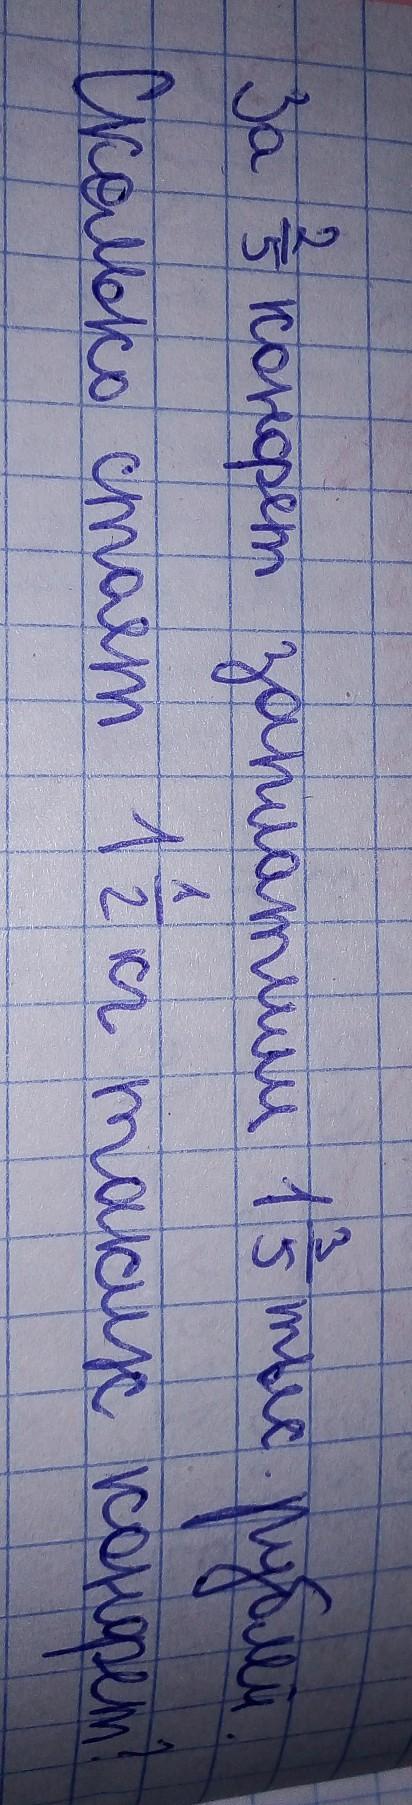 За 2/5 конфет заплатили 1 3/5 тыс. рублей.
Сколько стоят 1 1/2 кг таких конфет?